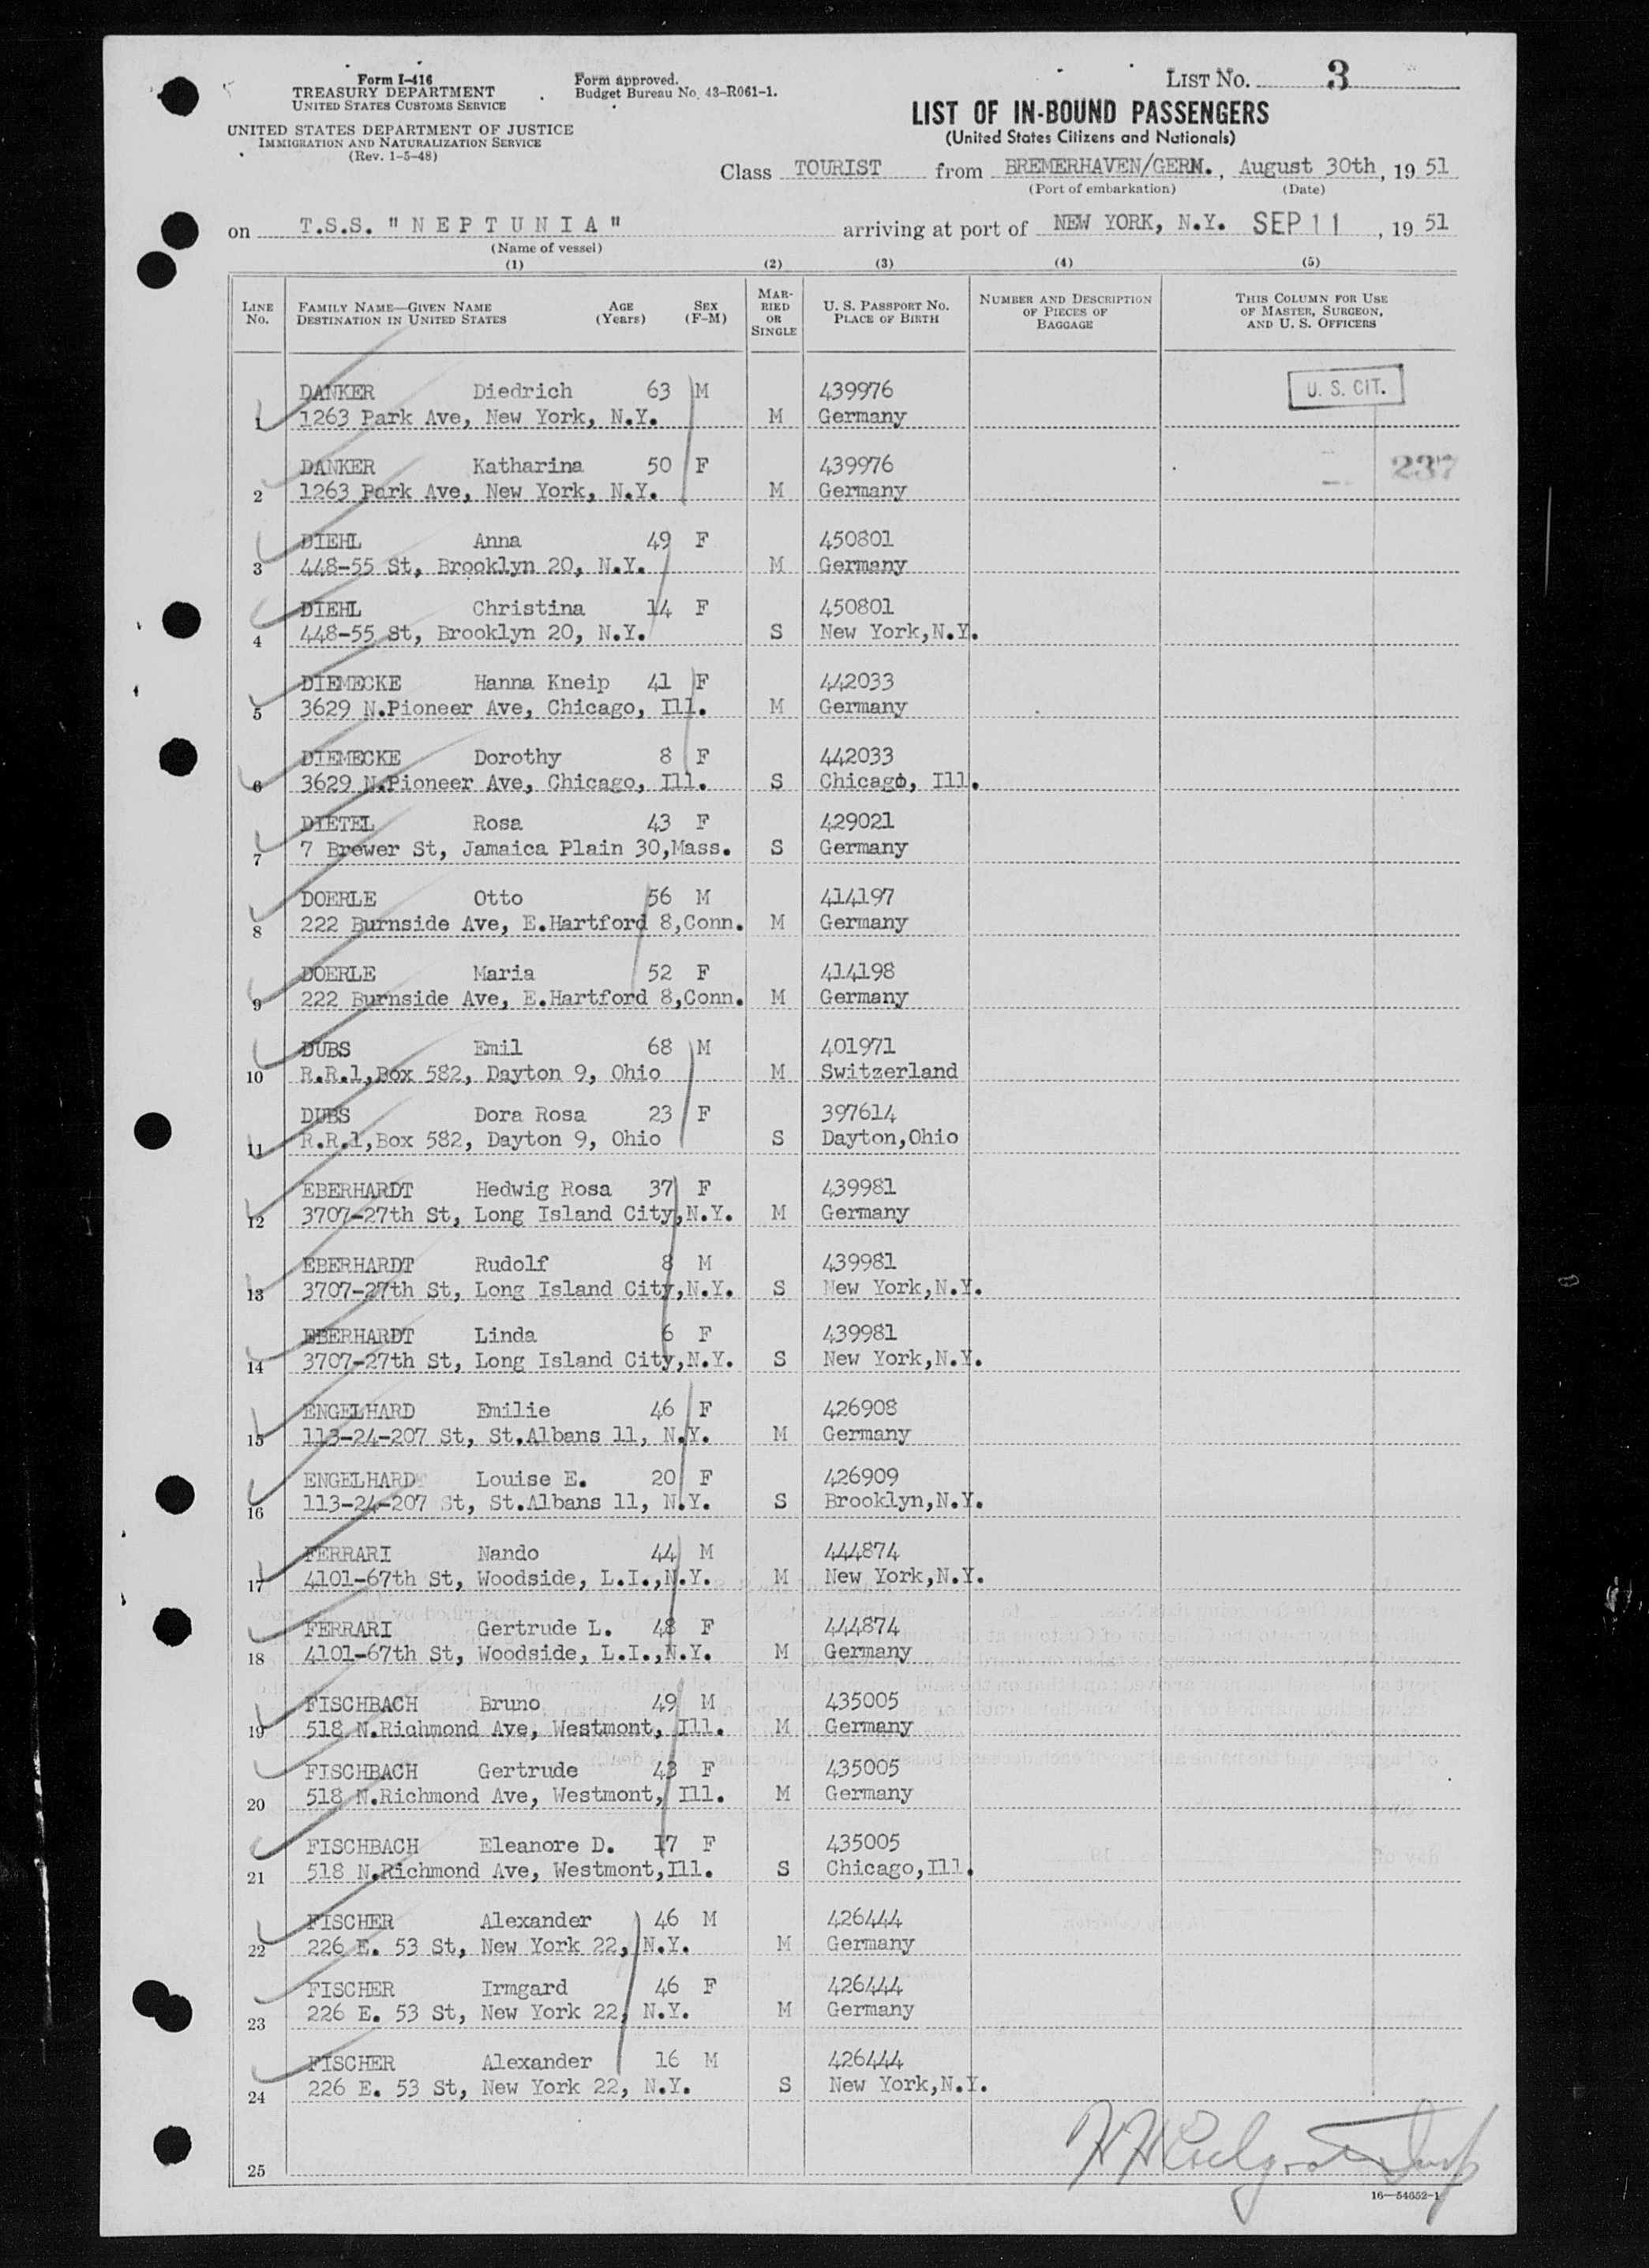 Form I-416
TREASURY DEPARTMENT
UNITED STATES CUSTOMS SERVICE
UNITED STATES DEPARTMENT OF JUSTICE
IMMIGRATION AND NATURALIZATION SERVICE
(Rev. 1-5-48)
Form approved.
Budget Bureau No. 43-R061-1.
LIST NO. 3
LIST OF IN-BOUND PASSENGERS
(United States Citizens and Nationals)
Class TOURIST from BREMERHAVEN/GERM., August 30th, 19 51
(Port of embarkation) (Date)
on T.S.S. "NEPTUNIA" arriving at port of NEW YORK, N.Y. SEP 11, 19 51
(Name of vessel)
(1) (2) (3) (4) (5)
LINE No. FAMILY NAME—GIVEN NAME DESTINATION IN UNITED STATES AGE (Years) SEX (F-M) MARRIED OR SINGLE U. S. PASSPORT NO. PLACE OF BIRTH NUMBER AND DESCRIPTION OF PIECES OF BAGGAGE THIS COLUMN FOR USE OF MASTER, SURGEON, AND U. S. OFFICERS
DANKER Diedrich 63 M 439976 U. S. CIT.
1 1263 Park Ave, New York, N.Y. M Germany
DANKER Katharina 50 F 439976 237
2 1263 Park Ave, New York, N.Y. M Germany
DIEHL Anna 49 F 450801
3 448-55 St, Brooklyn 20, N.Y. M Germany
DIEHL Christina 14 F 450801
4 448-55 St, Brooklyn 20, N.Y. S New York,N.Y.
DIEMECKE Hanna Kneip 41 F 442033
5 3629 N.Pioneer Ave, Chicago, Ill. M Germany
DIEMECKE Dorothy 8 F 442033
6 3629 N.Pioneer Ave, Chicago, Ill. S Chicago, Ill.
DIETEL Rosa 43 F 429021
7 7 Brewer St, Jamaica Plain 30,Mass. S Germany
DOERLE Otto 56 M 414197
8 222 Burnside Ave, E.Hartford 8,Conn. M Germany
DOERLE Maria 52 F 414198
9 222 Burnside Ave, E.Hartford 8,Conn. M Germany
DUBS Emil 68 M 401971
10 R.R.1,Box 582, Dayton 9, Ohio M Switzerland
DUBS Dora Rosa 23 F 397614
11 R.R.1,Box 582, Dayton 9, Ohio S Dayton,Ohio
EBERHARDT Hedwig Rosa 37 F 439981
12 3707-27th St, Long Island City,N.Y. M Germany
EBERHARDT Rudolf 8 M 439981
13 3707-27th St, Long Island City,N.Y. S New York,N.Y.
EBERHARDT Linda 6 F 439981
14 3707-27th St, Long Island City,N.Y. S New York,N.Y.
ENGELHARD Emilie 46 F 426908
15 113-24-207 St, St.Albans 11, N.Y. M Germany
ENGELHARD Louise E. 20 F 426909
16 113-24-207 St, St.Albans 11, N.Y. S Brooklyn,N.Y.
FERRARI Nando 44 M 444874
17 4101-67th St, Woodside, L.I.,N.Y. M New York,N.Y.
FERRARI Gertrude L. 48 F 444874
18 4101-67th St, Woodside, L.I.,N.Y. M Germany
FISCHBACH Bruno 49 M 435005
19 518 N.Richmond Ave, Westmont, Ill. M Germany
FISCHBACH Gertrude 43 F 435005
20 518 N.Richmond Ave, Westmont, Ill. M Germany
FISCHBACH Eleanore D. 17 F 435005
21 518 N.Richmond Ave, Westmont,Ill. S Chicago,Ill.
FISCHER Alexander 46 M 426444
22 226 E. 53 St, New York 22, N.Y. M Germany
FISCHER Irmgard 46 F 426444
23 226 E. 53 St, New York 22, N.Y. M Germany
FISCHER Alexander 16 M 426444
24 226 E. 53 St, New York 22, N.Y. S New York,N.Y.
25
16—54652-1